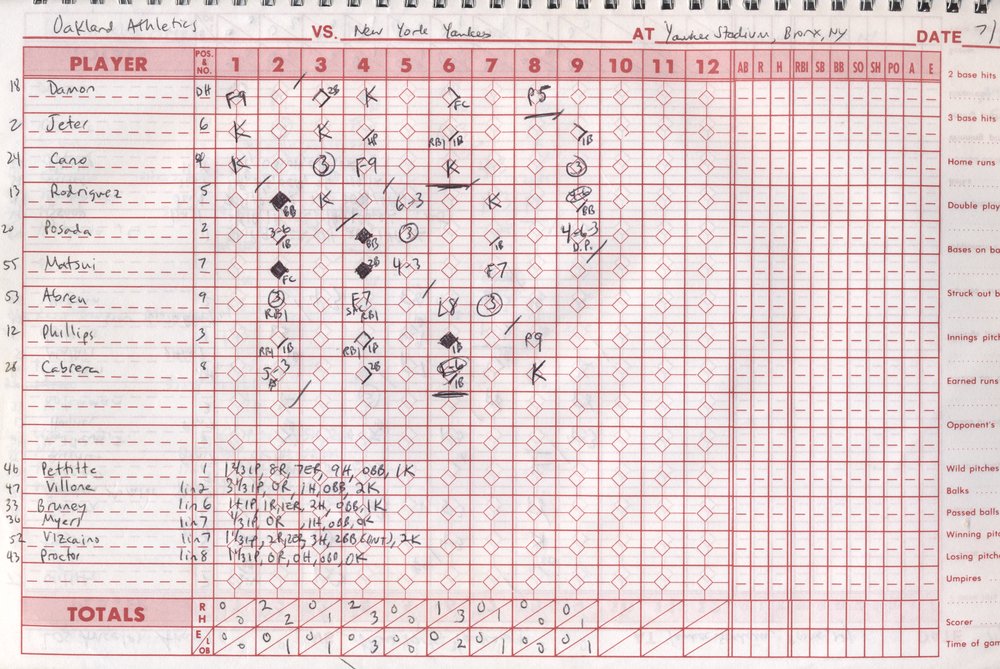 Oakland Athletics VS. New York Yankees AT Yankee Stadium, Bronx, NY DATE 7/
PLAYER POS. & NO. 1 2 3 4 5 6 7 8 9 10 11 12 AB R H RBI SB BB SO SH PO A E
2 base hits
18 Damon DH F9 2B K FC P5
3 base hits
2 Jeter 6 K K 1B RBI 1B 1B
Home runs
24 Cano 4 K 3 F9 K 3
13 Rodriguez 5 BB K 6-3 K BB
Double play
20 Posada 2 3-6 1B BB 3 1B 4-6-3 D.P.
Bases on ba
55 Matsui 7 FC 2B 4-3 F7
Struck out b
53 Abreu 9 3 RBI F7 SAC RBI L8 3
Innings pitch
12 Phillips 3 RBI 1B RBI 1B 1B P9
28 Cabrera 8 5-3 2B 1B K
Earned runs
Opponent's
46 Pettitte 1 1 2/3 IP, 8R, 7ER, 9H, 0BB, 1K
Wild pitches
47 Villone 1 in 2 3 1/3 IP, 0R, 1H, 0BB, 2K
Balks
33 Bruney 1 in 6 1+IP, 1R, 1ER, 2H, 0BB, 1K
Passed balls
36 Myers 1 in 7 1/3 IP, 0R, 1H, 0BB, 0K
52 Vizcaino 1 in 7 1 1/3 IP, 2R, 2ER, 3H, 2BB (INT), 2K
Winning pitc
43 Proctor 1 in 8 1 1/3 IP, 0R, 0H, 0BB, 0K
Losing pitche
Umpires
TOTALS R H 0 0 2 2 0 1 2 3 0 0 1 3 0 1 0 0 0 1
Scorer
E LOB 0 0 0 1 0 1 0 3 0 0 0 2 0 1 0 0 0 1
Time of gam